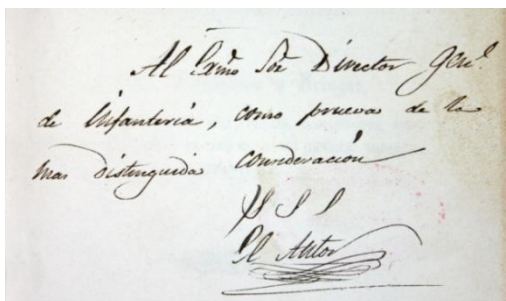 Al Exmo Sor Director Genl.
de Infanteria, como prueva de la
mas distinguida consideración
S S S
El Autor